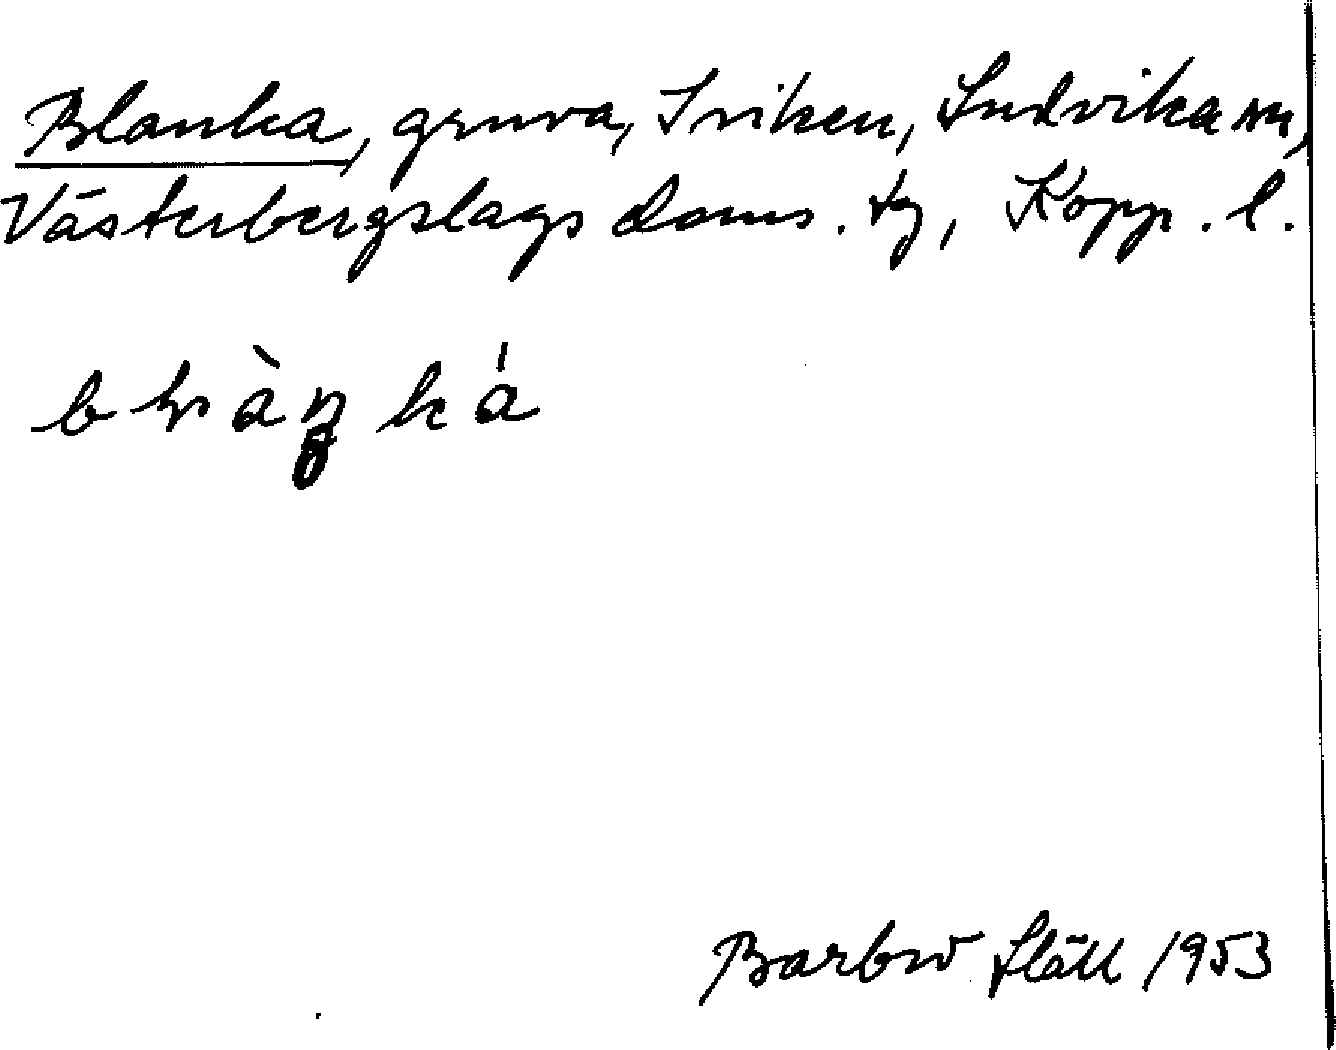 Blanka, gruva, Iviken, Ludvika sn,
Västerbergslags doms. tg, Kopp. l.
Barbro Slätt 1953